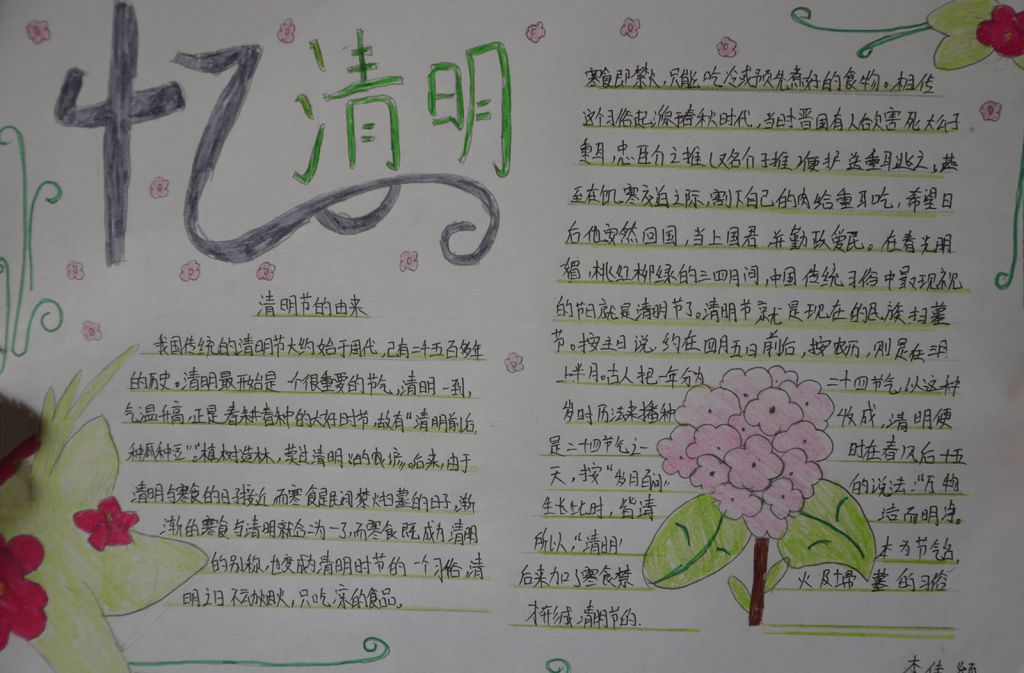 忆清明
清明节的由来
我国传统的清明节大约始于周代,已有二千五百多年
的历史。清明最开始是一个很重要的节气,清明一到,
气温升高,正是春耕春种的大好时节,故有“清明前后,
种瓜种豆”。“植树造林,莫过清明”的农谚。后来,由于
清明与寒食的日子接近,而寒食是民间禁火扫墓的日子,渐
渐的寒食与清明就合为一了,而寒食既成为清明
的别称,也变成为清明时节的一个习俗,清
明之日不动烟火,只吃凉的食品。
寒食即禁火,只能吃冷或预先煮好的食物。相传
这个习俗起源春秋时代,当时晋国有人欲害死大公子
重耳,忠臣介之推(又名介子推)便护送重耳逃亡,甚
至在饥寒交迫之际,割下自己的肉给重耳吃,希望日
后他安然回国,当上国君并勤政爱民。在春光明
媚,桃红柳绿的三四月间,中国传统习俗中最现视
的节日就是清明节了。清明节就是现在的民族扫墓
节。按主日说,约在四月五日前后,按农历,则是在三月
上半月。古人把一年分为二十四节气,以这种
岁时历法来播种收成,清明便
是二十四节气之一时在春风后十五
天,按“岁月百问”的说法:“万物
生长此时,皆清洁而明净。
所以,“清明”本为节气名
后来加了寒食禁火及扫墓的习俗
才形成清明节的.
李佳颖